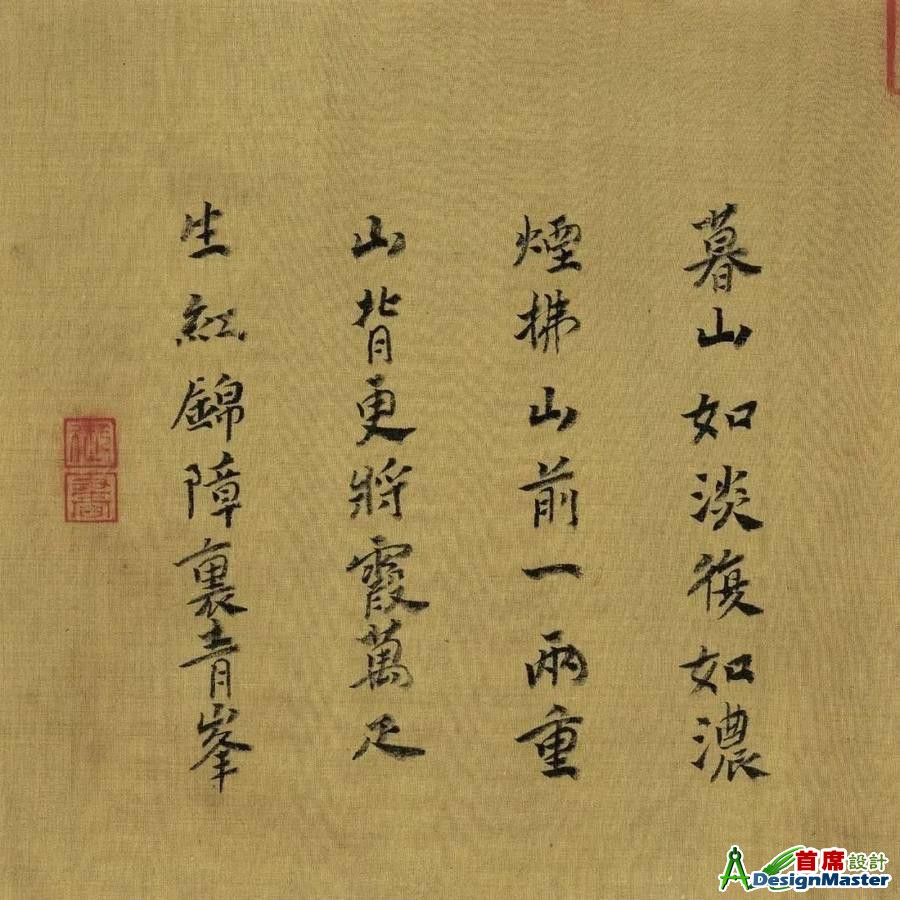 暮山如淡復如濃
煙拂山前一兩重
山背更將霞萬疋
生紅錦障裹青峯
御書
首席設計
ADesignMaster